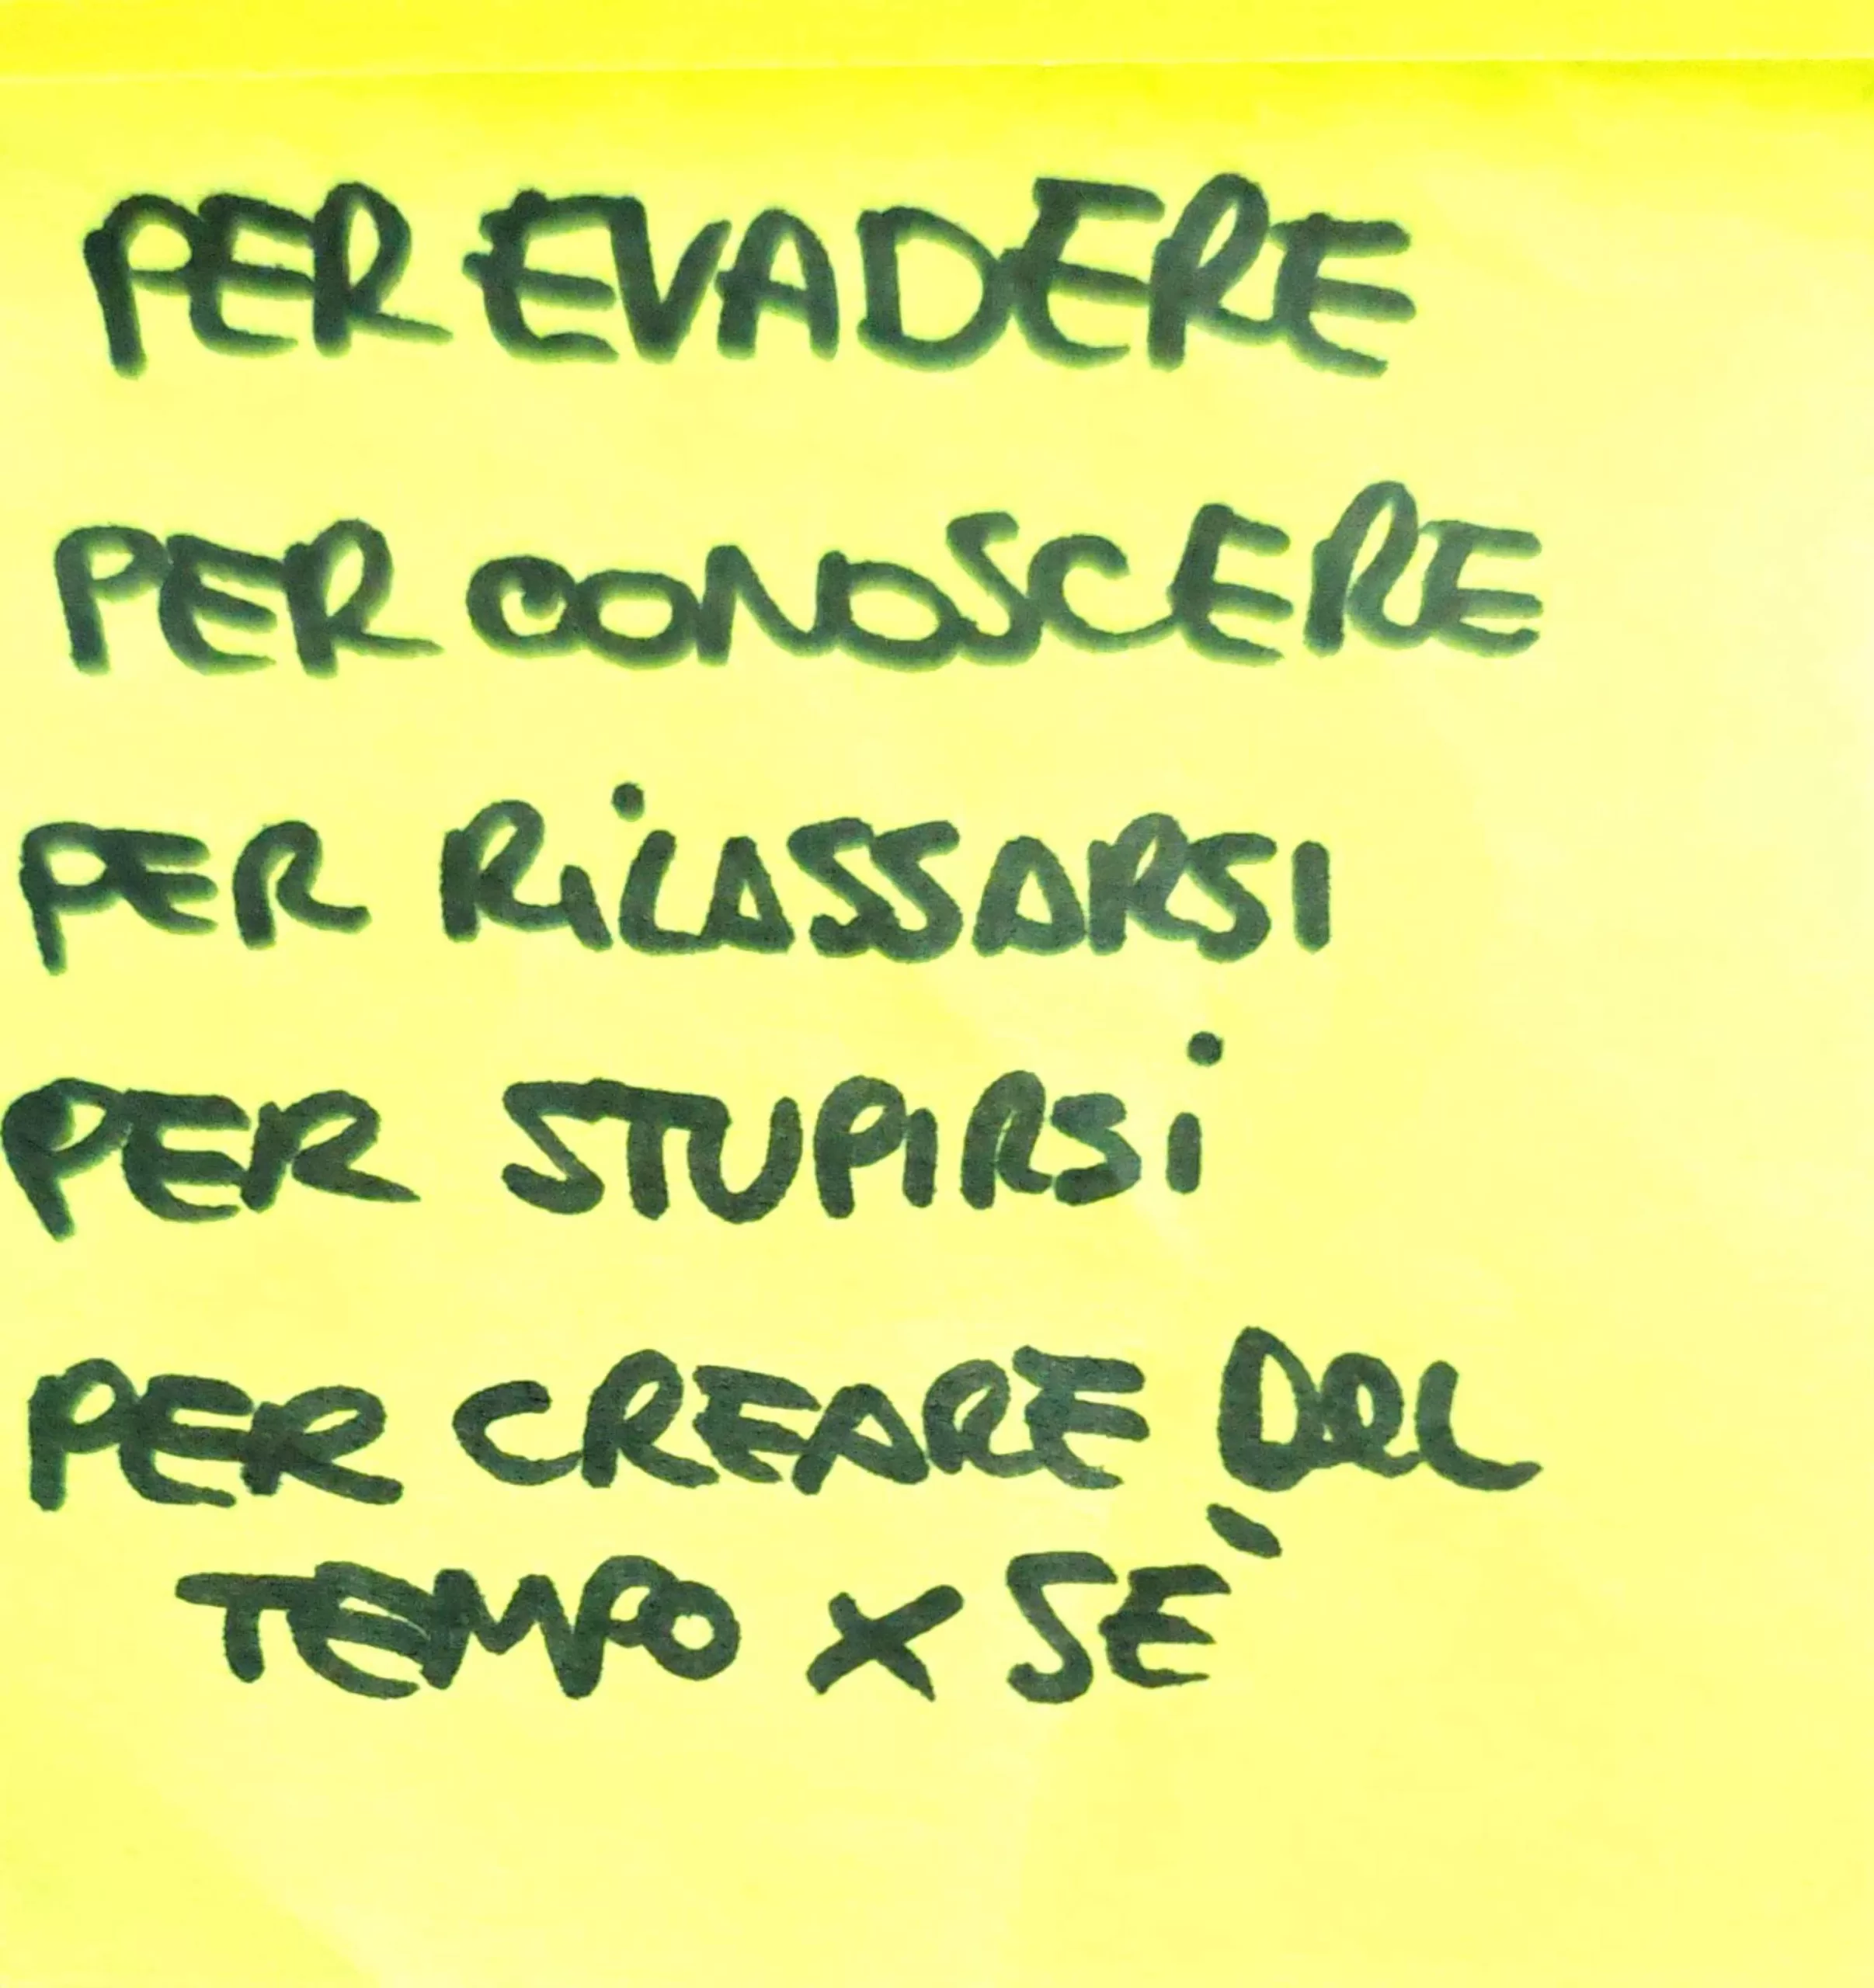 PER EVADERE
PER CONOSCERE
PER RiLASSARSI
PER STUPIRSi
PER CREARE DEL
TEMPO x SÈ